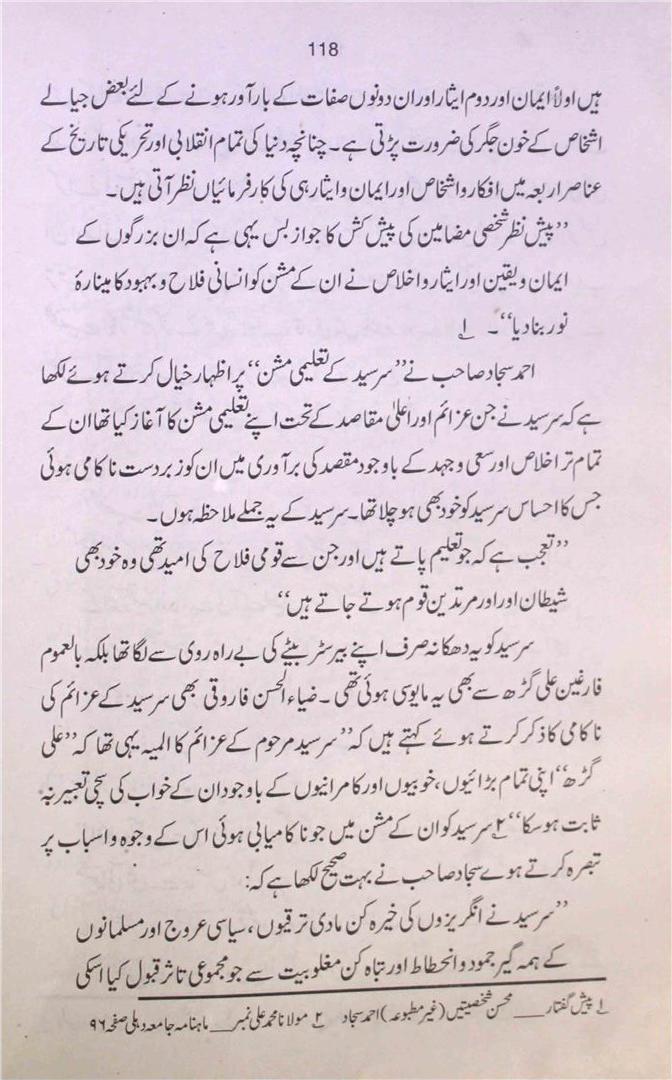 118
ہیں اولاً ایمان اور دوم ایثار اور ان دونوں صفات کے بارآور ہونے کے لئے بعض جیالے
اشخاص کے خون جگر کی ضرورت پڑتی ہے۔ چنانچہ دنیا کی تمام انقلابی اور تحریکی تاریخ کے
عناصر اربعہ میں افکار و اشخاص اور ایمان و ایثار ہی کی کارفرمائیاں نظر آتی ہیں۔
’’پیش نظر شخصی مضامین کی پیش کش کا جواز بس یہی ہے کہ ان بزرگوں کے
ایمان و یقین اور ایثار و اخلاص نے ان کے مشن کو انسانی فلاح و بہبود کا مینارۂ
نور بنادیا‘‘۔ ۱
احمد سجاد صاحب نے ’’سرسید کے تعلیمی مشن‘‘ پر اظہار خیال کرتے ہوئے لکھا
ہے کہ سرسید نے جن عزائم اور اعلیٰ مقاصد کے تحت اپنے تعلیمی مشن کا آغاز کیا تھا ان کے
تمام تر اخلاص اور سعی و جہد کے باوجود مقصد کی برآوری میں ان کو زبردست ناکامی ہوئی
جس کا احساس سرسید کو خود بھی ہو چلا تھا۔ سرسید کے یہ جملے ملاحظہ ہوں۔
’’تعجب ہے کہ جو تعلیم پاتے ہیں اور جن سے قومی فلاح کی امید تھی وہ خود بھی
شیطان اور اور مرتدین قوم ہوتے جاتے ہیں‘‘
سرسید کو یہ دھکا نہ صرف اپنے بیرسٹر بیٹے کی بے راہ روی سے لگا تھا بلکہ بالعموم
فارغین علی گڑھ سے بھی یہ مایوسی ہوئی تھی۔ ضیاء الحسن فاروقی بھی سرسید کے عزائم کی
ناکامی کا ذکر کرتے ہوئے کہتے ہیں کہ ’’سرسید مرحوم کے عزائم کا المیہ یہی تھا کہ ’’علی
گڑھ‘‘ اپنی تمام بڑائیوں، خوبیوں اور کامرانیوں کے باوجود ان کے خواب کی سچی تعبیر نہ
ثابت ہو سکا‘‘ ۲ سرسید کو ان کے مشن میں جو ناکامیابی ہوئی اس کے وجوہ و اسباب پر
تبصرہ کرتے ہوے سجاد صاحب نے بہت صحیح لکھا ہے کہ:
’’سرسید نے انگریزوں کی خیرہ کن مادی ترقیوں، سیاسی عروج اور مسلمانوں
کے ہمہ گیر جمود و انحطاط اور تباہ کن مغلوبیت سے جو مجموعی تاثر قبول کیا اسکی
۱ پیش گفتار ___ محسن شخصیتیں (غیر مطبوعہ) احمد سجاد ۲ مولانا محمد علی نمبر ___ ماہنامہ جامعہ دہلی صفحہ ۹۶